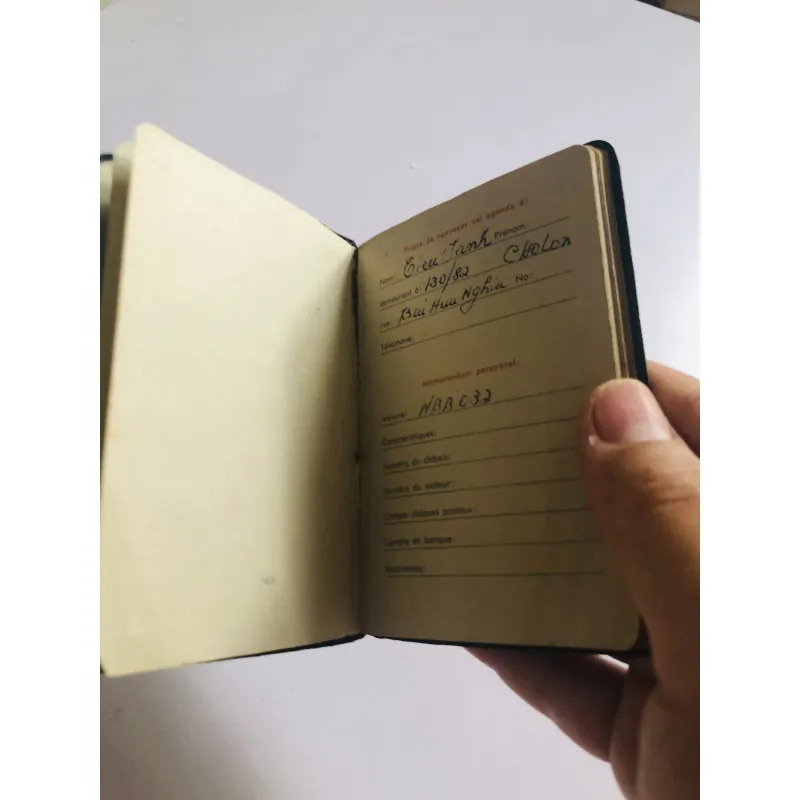 Prière de renvoyer cet agenda à:
Nom: Tieu Tank Prénom:
demeurant à: 130/82 CHOLON
rue: Bui Huu Nghia No:
Téléphone:
Mémorandum personnel:
Voiture: NBB 032
Caractéristiques:
Numéro du châssis:
Numéro du moteur:
Compte chèques postaux:
Compte en banque:
Assurances: